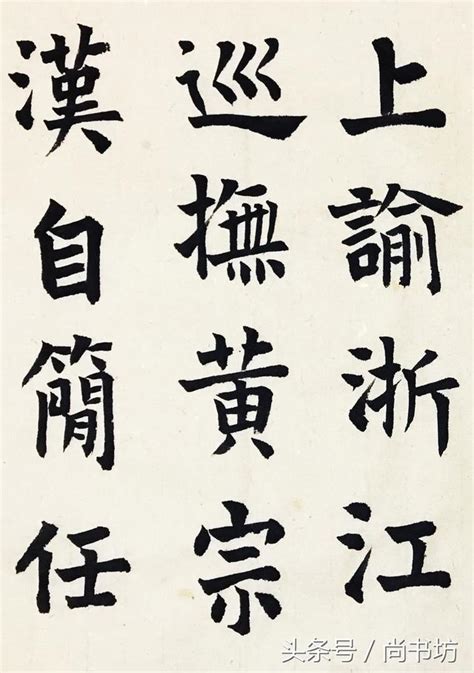 上諭浙江
巡撫黄宗
漢自簡任
头条号 / 尚书坊